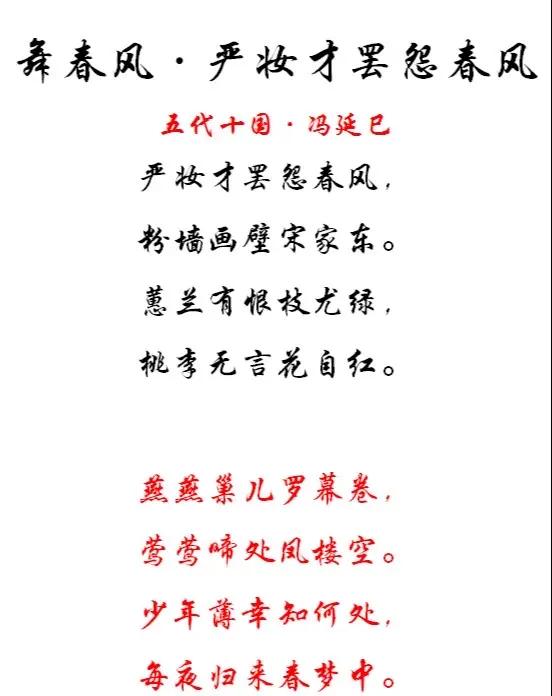 舞春风·严妆才罢怨春风
五代十国·冯延巳
严妆才罢怨春风，
粉墙画壁宋家东。
蕙兰有恨枝尤绿，
桃李无言花自红。
燕燕巢儿罗幕卷，
莺莺啼处凤楼空。
少年薄幸知何处，
每夜归来春梦中。